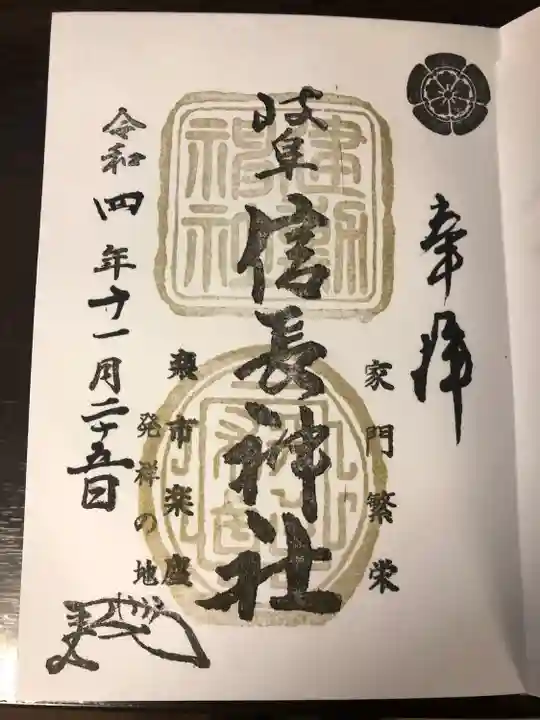 奉拝
家門繁栄
岐阜信長神社
建勲
神社
楽市楽座
発祥の地
令和四年十一月二十五日